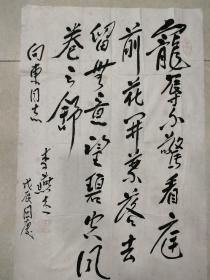 寵辱不驚看庭
前花开葉落去
留無意望碧空风
卷云舒
向東同志
李燕
戊辰国慶